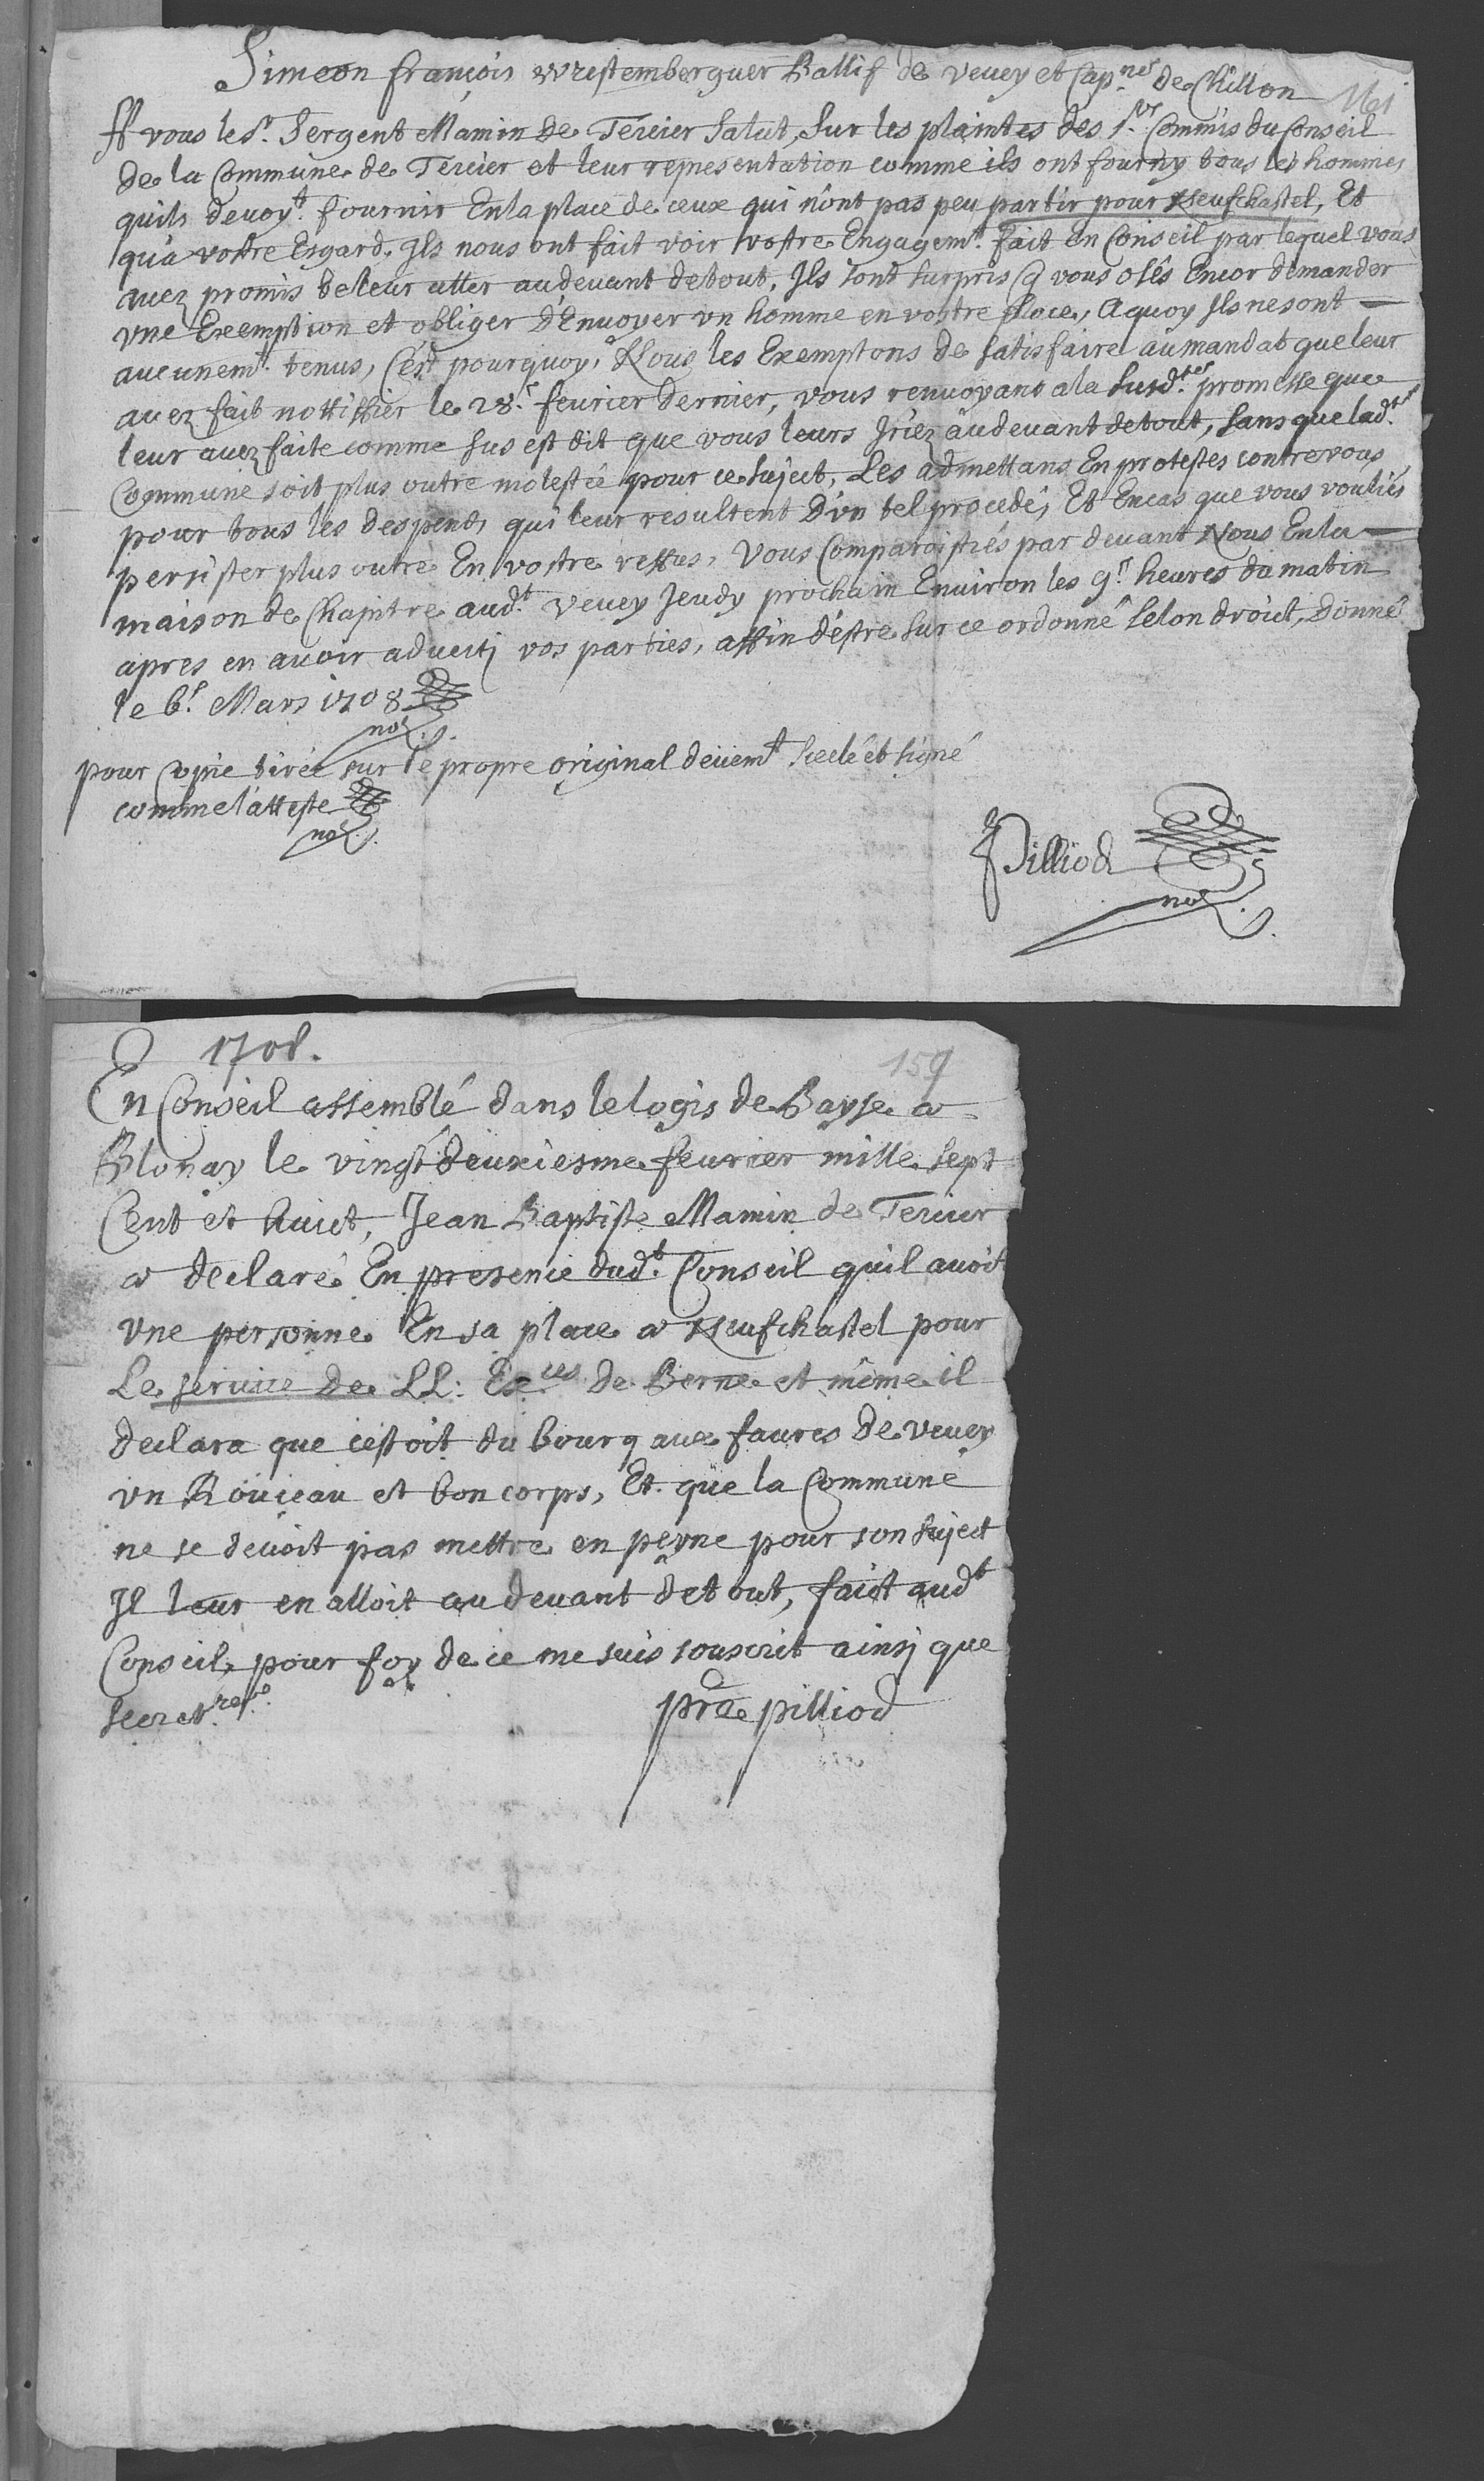 Simeon françois wrestemberguer Ballif de vevey et Cap.nes de Chillon
161
A vous le Sr. Sergent Mamin De Tercier Salut, Sur les plaintes des Srs. Commis du Conseil
de la Commune de Tercier et leur representation comme ils ont fourny tous les hommes
quils devoyt. fournir En la place de ceux qui nont pas peu partir pour Neufchastel, Et
qu'a vostre Esgard, Ils nous ont fait voir vostre Engagemt. fait En Conseil par lequel vous
avez promis de leur aller audevant de tout, Ils sont surpris q vous osés Encor demander
vne Exemption et obliger D'Envoyer vn homme en vostre place, A quoy Ils ne sont
aucunemt. tenus, C'est pourquoy, Nous les Exemptons de satisfaire au mandat que leur
avez fait nottiffier le 28.e fevrier dernier, vous renvoyans a la susd.te promesse que
leur avez faite comme sus est dit que vous leurs Iriez audevant de tout, sans que lad.te
Commune soit plus outre molestée pour ce suject, Les admettans En protestes contre vous
pour tous les despends qui leur resultent D'vn tel procedé, Et En cas que vous vouliés
persister plus outre En vostre reffus, Vous Comparoistrés par devant Nous En la
maison de Chapitre aud.t Vevey Jeudy prochain Environ les 9.r heures du matin
apres en avoir adverti vos parties, affin d'estre sur ce ordonné selon droict, Donné
le 6.e Mars 1708
not.
pour copie tirée sur le propre original deuemt. scelé et signé
comme l'atteste
not.
Pilliod
not.
1708.
159
En Conseil assemblé dans le logis de Baysse a
Blonay le vingt deuxiesme fevrier mille sept
Cent et huict, Jean Baptiste Mamin de Tercier
a declaré En presence dud.t Conseil quil avoit
vne personne En sa place a Neufchastel pour
Le service de LL: Ex.ces de Berne et même il
declara que c'estoit du bourg aux favres de vevey
vn Rouieau et bon corps, Et que la Commune
ne se devoit pas mettre en peyne pour son suject
Il leur en alloit audevant de tout, faict aud.t
Conseil, pour foy de ce me suis souscrit ainsi que
Secret.re
Pilliod